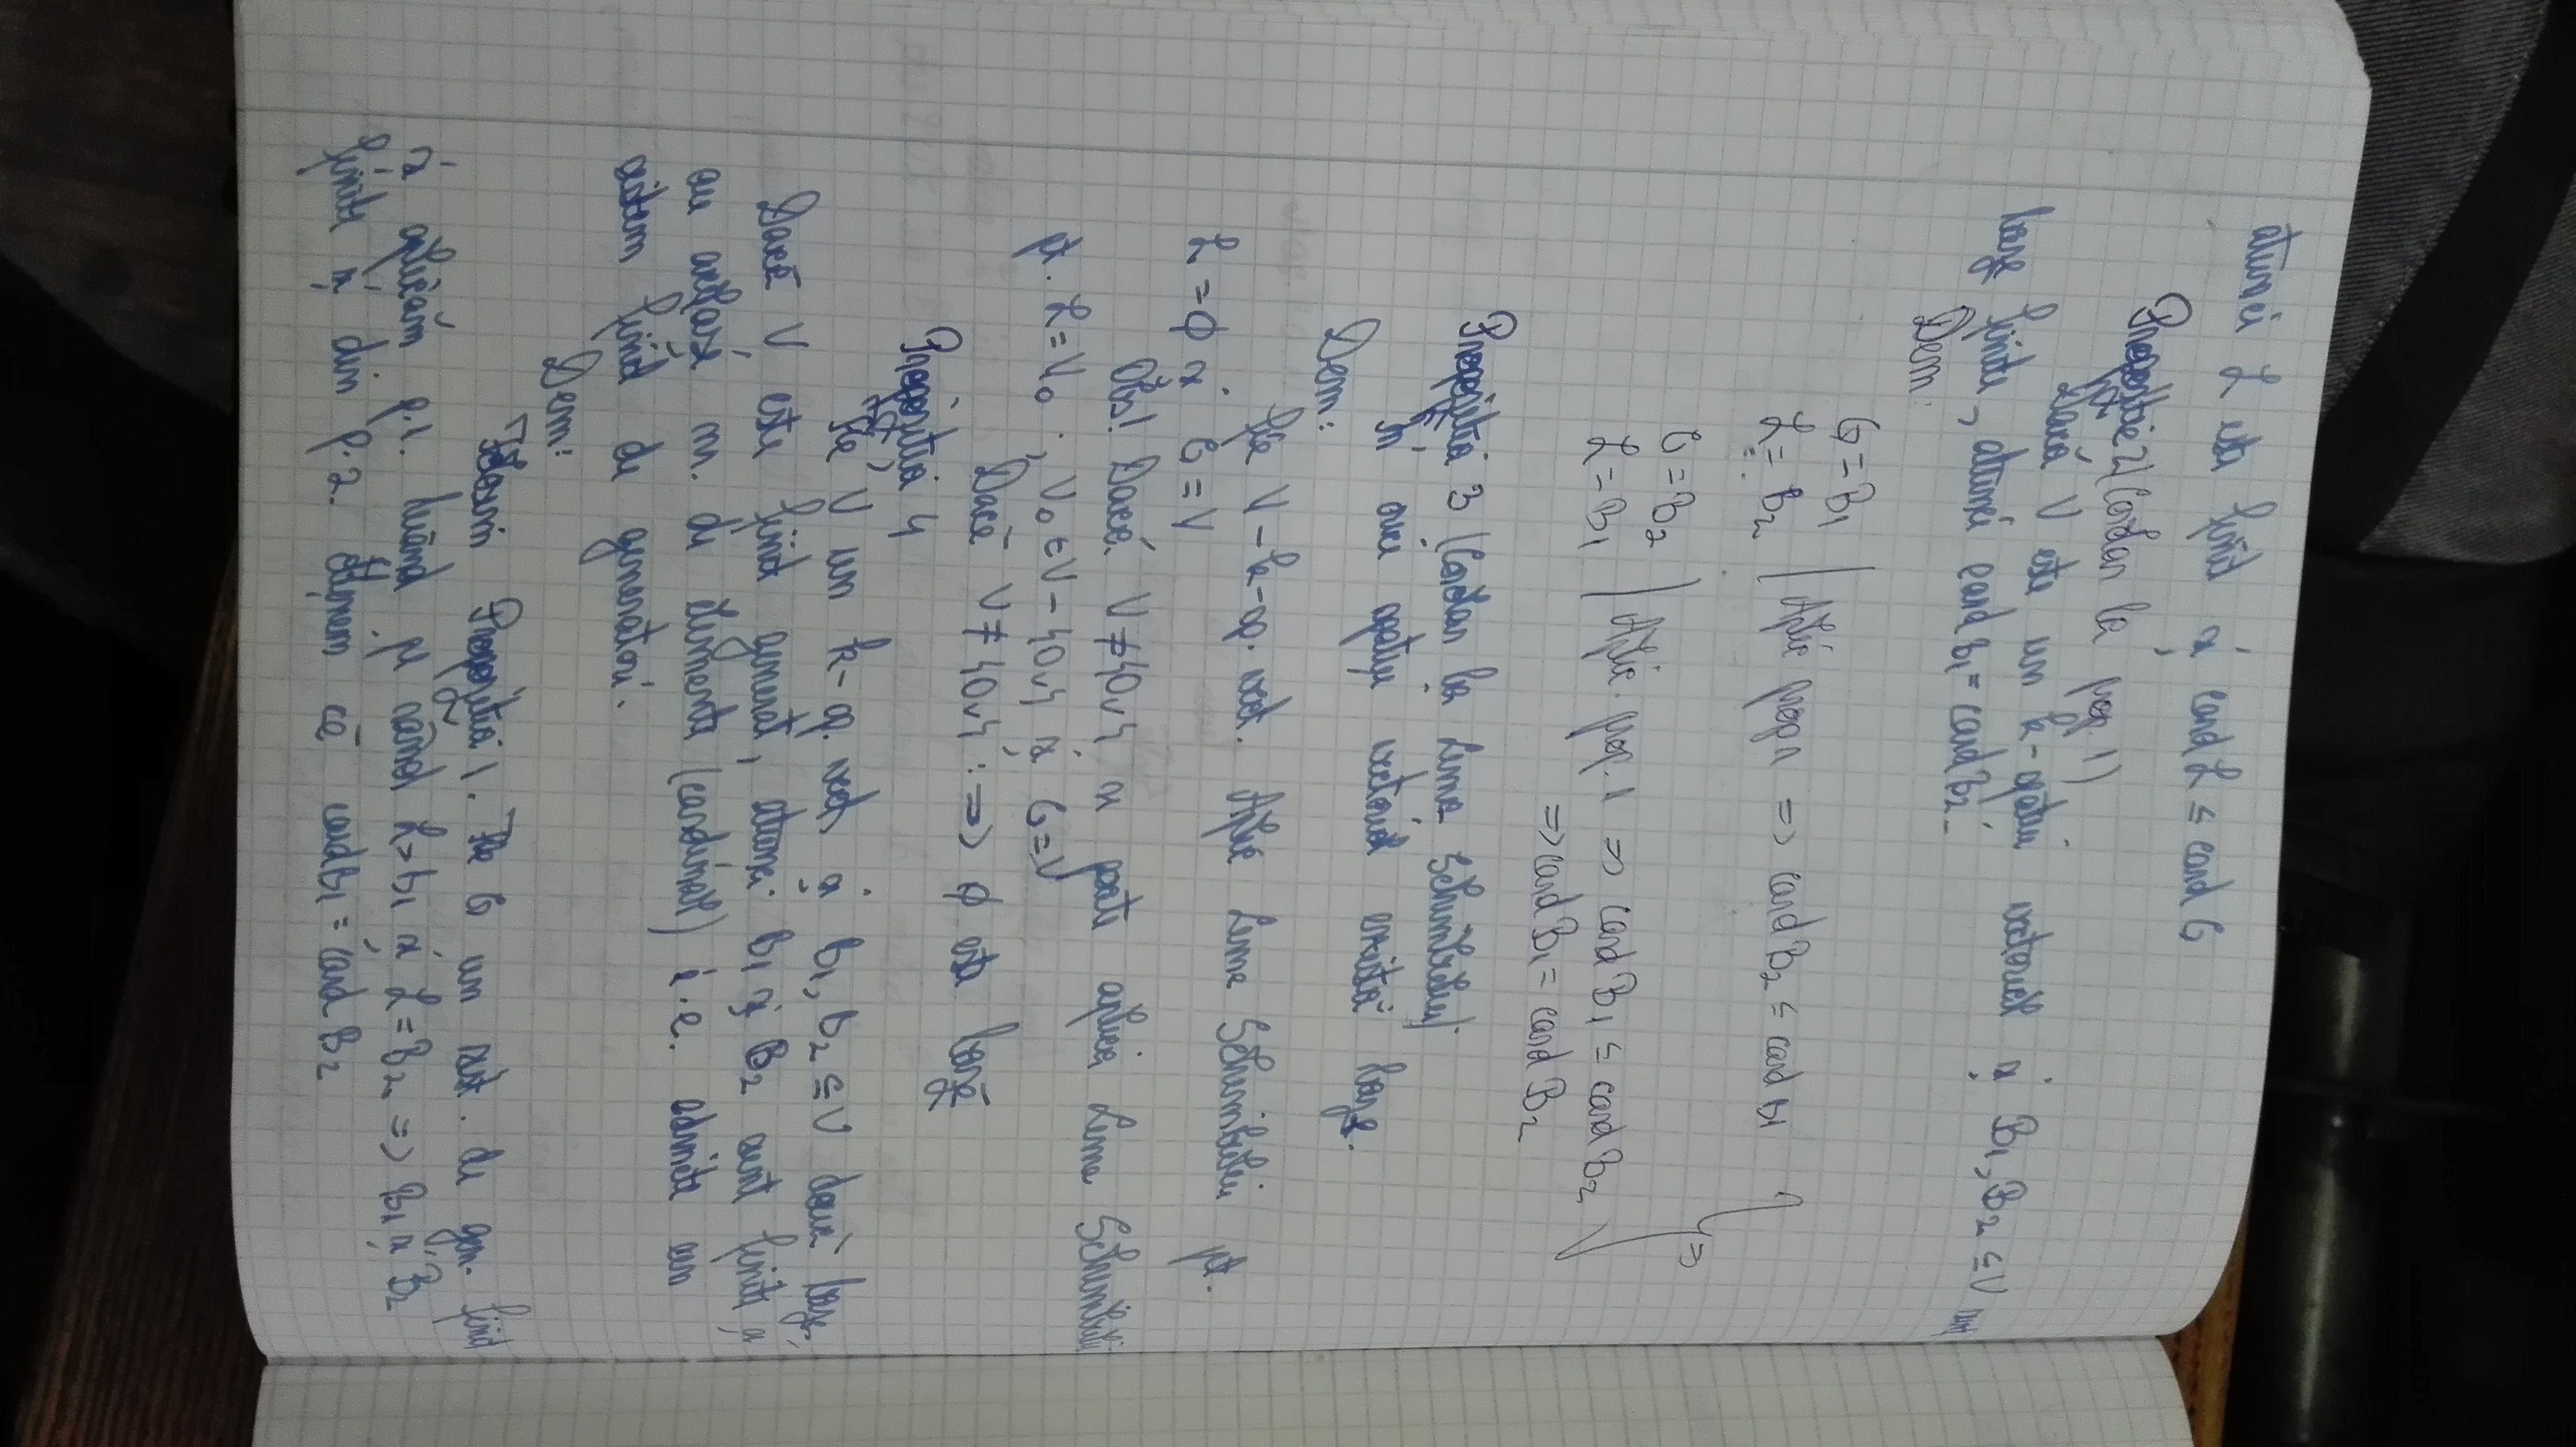 atunci L este finită și card L ≤ card G
Propoziție 2 (Corolar la prop. 1)
Dacă V este un k-spațiu vectorial și B₁, B₂ ⊆ V sunt
baze finite, atunci card B₁ = card B₂.
Dem:
G = B₁
L = B₂ | Aplic prop 1 => card B₂ ≤ card B₁
G = B₂
L = B₁ | Aplic. prop. 1 => card B₁ ≤ card B₂ } =>
=> card B₁ = card B₂
Propoziția 3 (Corolar la Lema Schimbului)
În orice spațiu vectorial există baze.
Dem:
Fie V - k-sp. vect. Aplic Lema Schimbului pt.
L = ∅ și G = V
Obs! Dacă V ≠ {0ᵥ} se poate aplica Lema Schimbului
pt. L = V₀ ; V₀ ∈ V - {0ᵥ} și G = V
Dacă V ≠ {0ᵥ} : => ∅ este bază
Propoziția 4
Fie V un k-sp. vect și B₁, B₂ ⊆ V două baze.
Dacă V este finit generat, atunci B₁ și B₂ sunt finite și
au același nr. de elemente (cardinal) i.e. admite un
sistem finit de generatori.
Dem:
Folosim Propoziția 1. Fie G un sist. de gen. finit
și aplicăm p.1. luând pe rând L = B₁ și L = B₂ => B₁ și B₂
finite și din p.2. obținem că card B₁ = card B₂